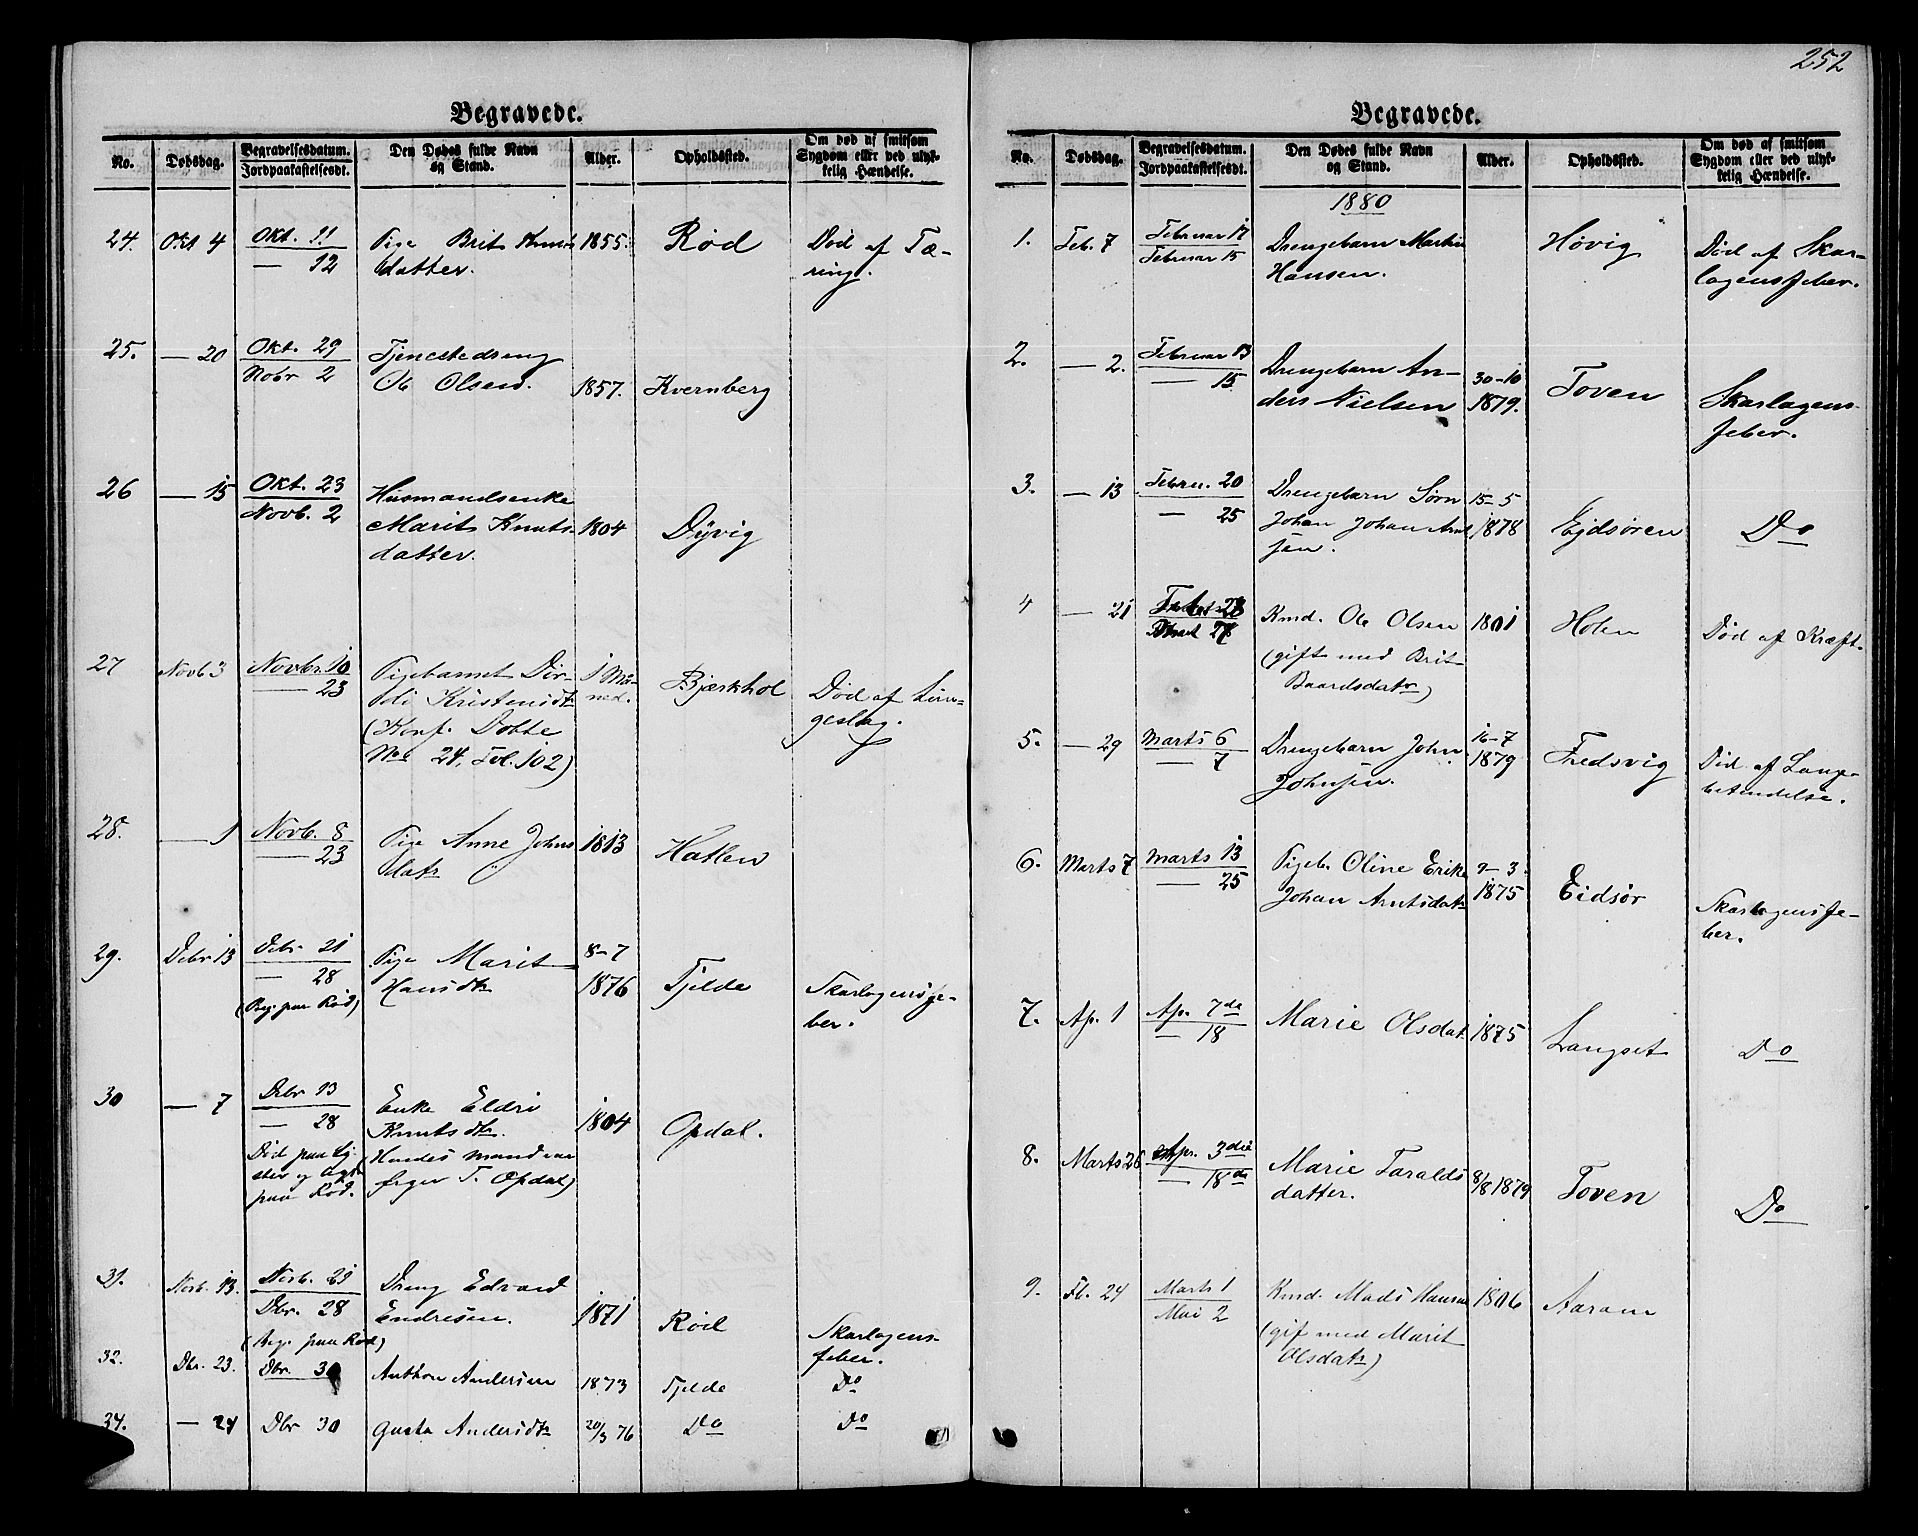 252
Begravede.
No. Dødsdag. Begravelsesdatum. Jordpaakastelsesdt. Den Dødes fulde Navn og Stand. Alder. Opholdssted. Om død af smitsom Sygdom eller ved ulyk- kelig Hændelse.
24. Okt 4 Okt. 11 Pige Brit Knuts 1855. Rød Død af Tæ-
— 12 datter. ring.
25. — 20 Okt. 29 Tjenestedreng
Nobr 2 Ole Olsen. 1857. Kvernberg
26 — 15 Okt. 23 Husmandsenke
Novb. 2 Marit Knuts- 1804 Dyvig
datter.
27 Novb 3 Novbr. 10 Pigebarnet Dor- 1 Maa- Bjærkhol Død af Lun-
— 23 di Kristensdtr ned. geslag.
(Konf. Dobte
No 24, Fol. 102)
28. — 1 Novb. 8 Pige Anne Johns 1813 Hatlen
— 23 datr
29. Debr 13 Debr 21 Pige Marit 8-7
— 28 Hansdtr 1876 Fjelde Skarlagensfe-
(Beg. paa Rød) ber.
30 — 7 Dcbr 13 Enke Eldri
— 28 Knutsdtr. 1804 Opdal.
Død paa
paa Rød. T. Opdal)
31. Novb. 13. Novb. 21 Dreng Edvard
Dbr. 28 Endresen. 1871 Rød Skarlagens-
(Beg. paa Rød) feber.
32. Dbr. 23. Dbr 30 Anthon Andersen 1873 Fjelde Do
34. — 24 Dbr 30 Gusta Andersdtr 20/3 76 Do Do
Begravede.
No. Dødsdag. Begravelsesdatum. Jordpaakastelsesdt. Den Dødes fulde Navn og Stand. Alder. Opholdssted. Om død af smitsom Sygdom eller ved ulyk- kelig Hændelse.
1880
1. Feb. 7 Februar 17 Drengebarn Martin Høvig Død af Skar-
Februar 15 Hansen. lagensfeber.
2. — 2. Februar 13 Drengebarn An- 30-10
— 15 ders Nielsen 1879. Toven Skarlagens-
feber.
3. — 13 Februr. 20 Drengebarn Sørn 15-5
— 25 Johan Johan Arnt 1878 Ejdsøren Do
sen.
4 — 21 28 Kmd. Ole Olsen 1801 Holen Død af Kræft.
27 (gift med Brit
Baardsdatr)
5. — 29 Marts 6 Drengebarn John 16-7 Fredsvig Død af Lunge-
— 7 Johnsen. 1879 betændelse.
6. Marts 7 Marts 13 Pigeb. Oline Erike 9-3
— 25 Johan Arntsdatr 1875 Eidsør Skarlagensfe-
ber.
7. Ap. 1 Ap. 7de Marie Olsdat. 1875 Langset Do
— 18
8. Marts 26 Apr. 3die Marie Taralds 8/8 1879 Toven Do
— 18de datter.
9. Fb. 24 Marts 1 Kmd. Mads Hansen 1806 Aaram
Mai 2 (gif med Marit
Olsdatr)